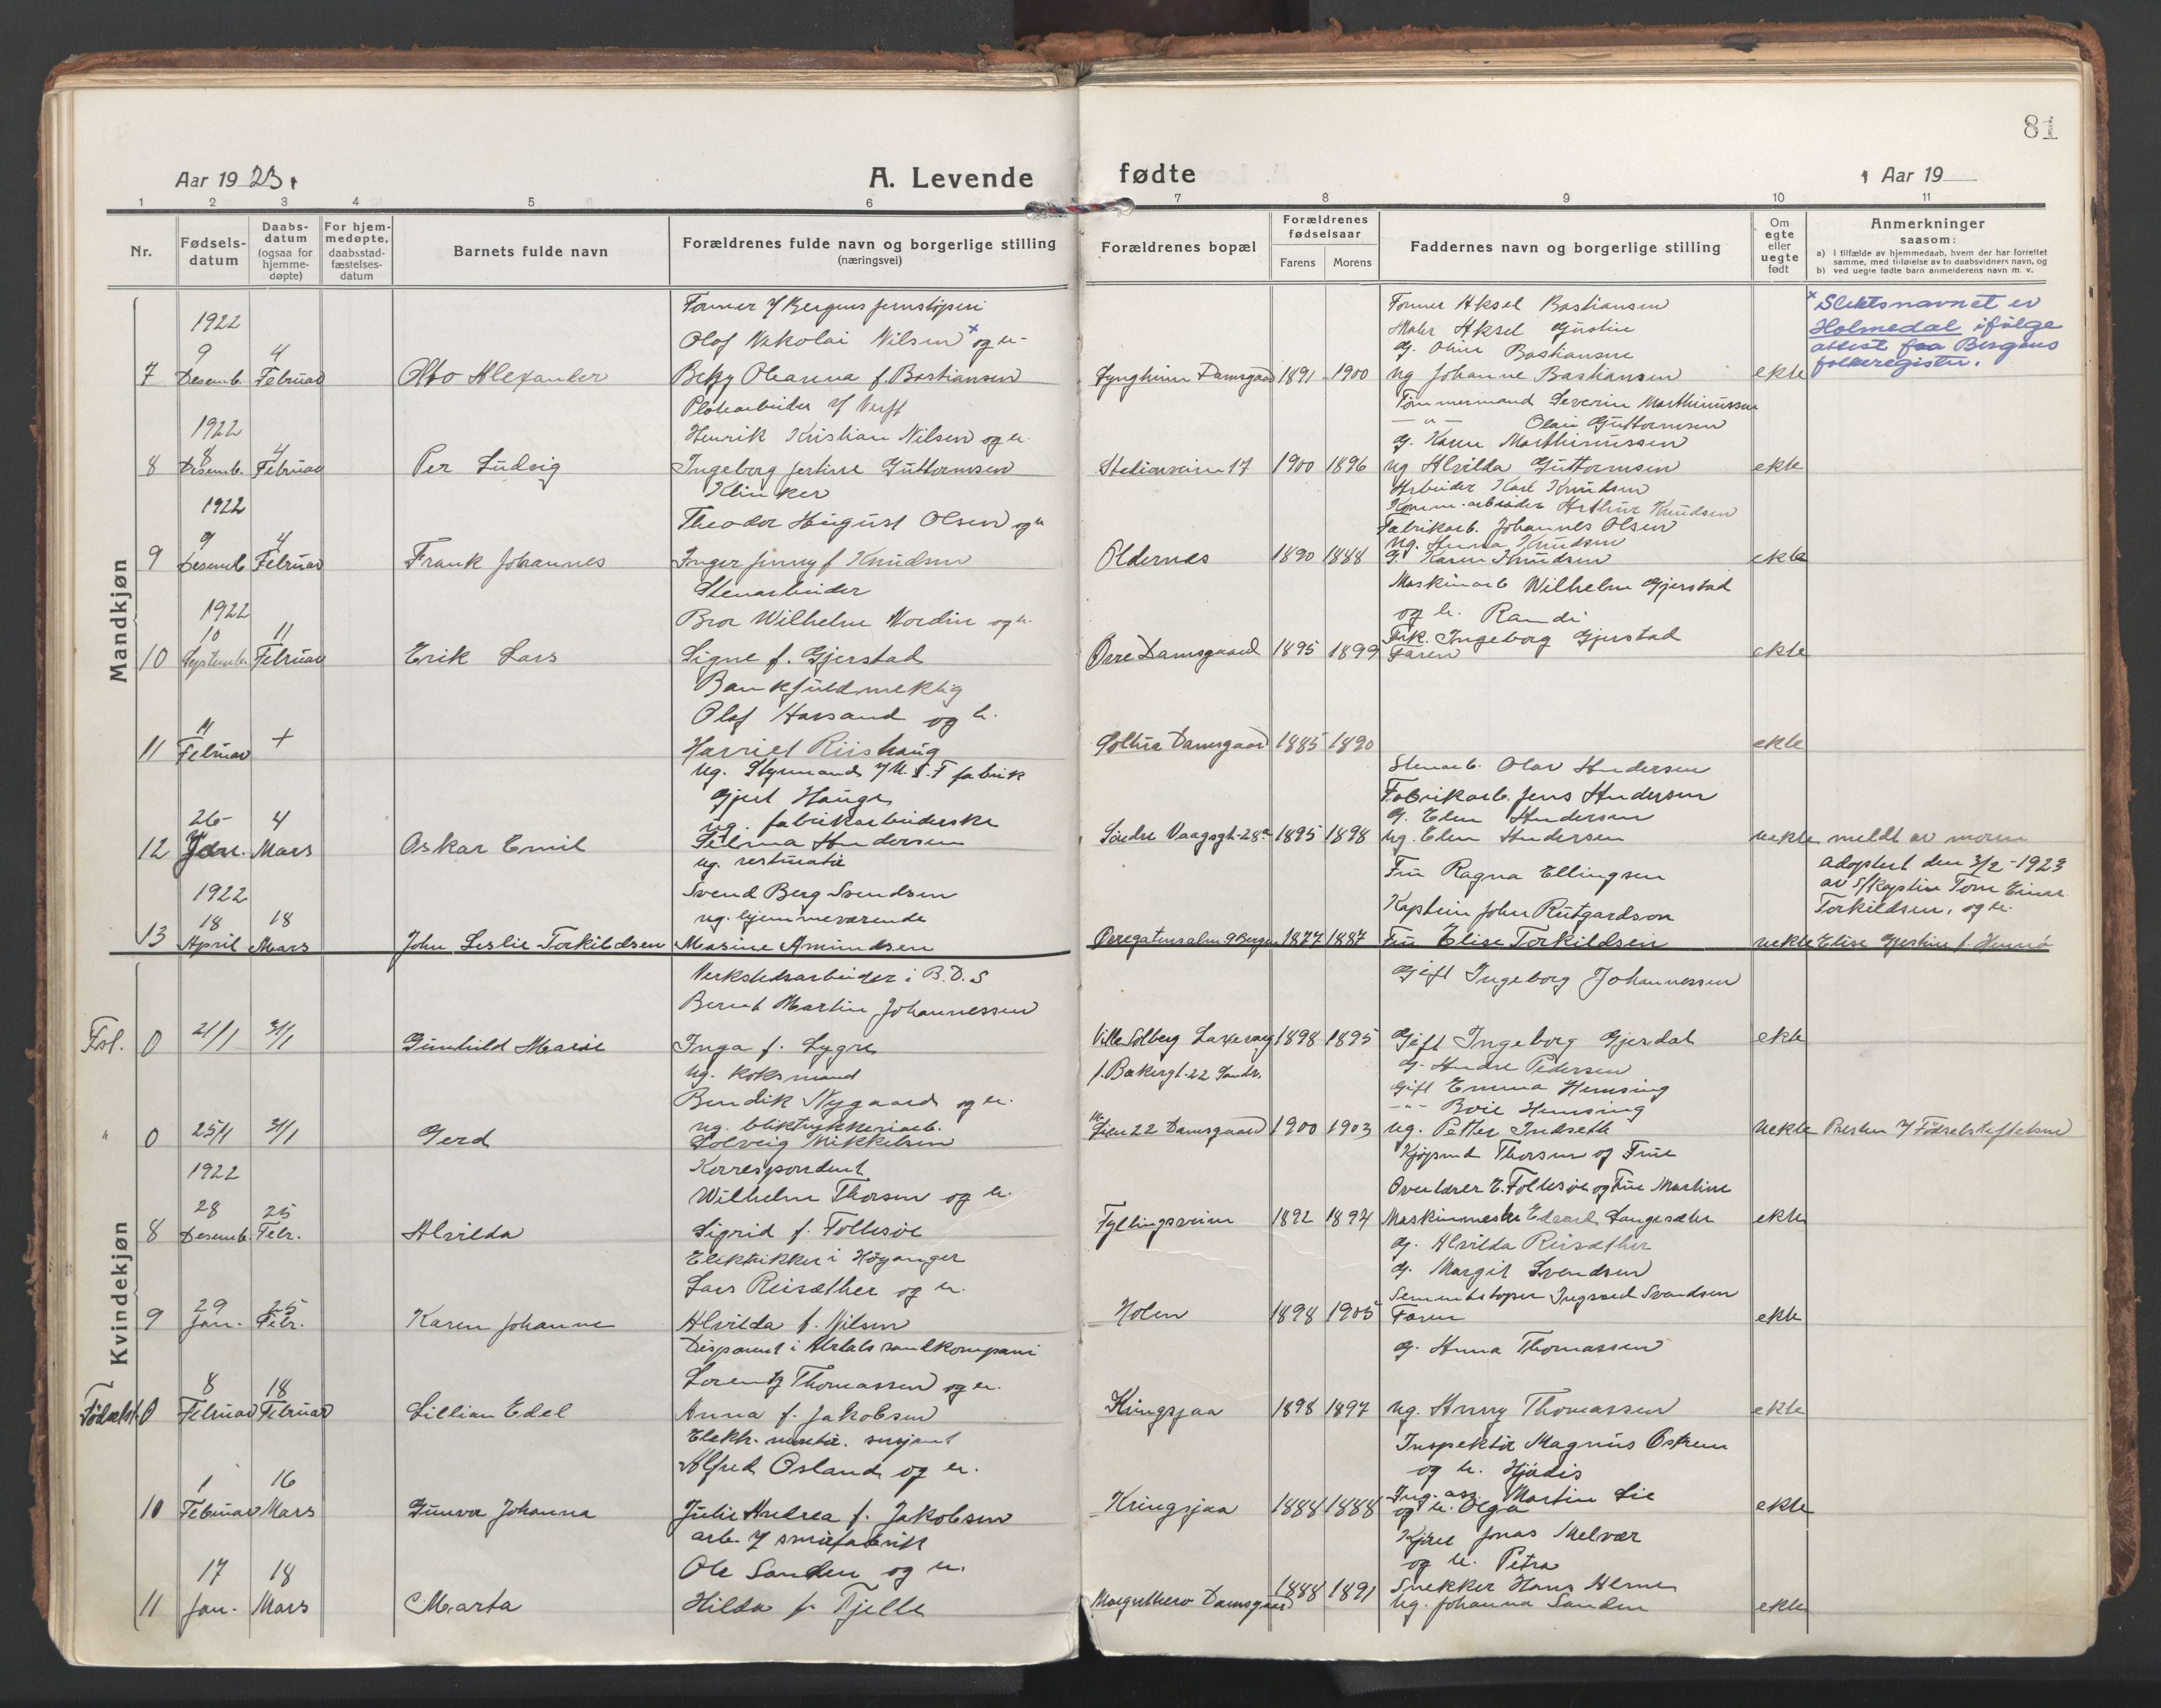 81
Aar 1923.
A. Levende
fødte
Aar 19
1 2 3 4 5 6 7 8 9 10 11
Nr.
Fødsels-
datum
Daabs-
datum
(ogsaa for
hjemme-
døpte)
For hjem-
medøpte,
daabsstad-
fæstelses-
datum
Barnets fulde navn
Forældrenes fulde navn og borgerlige stilling
(næringsvei)
Forældrenes bopæl
Forældrenes
fødselsaar
Farens Morens
Faddernes navn og borgerlige stilling
Om
egte
eller
uegte
født
Anmerkninger
saasom:
a) i tilfælde av hjemmedaab, hvem der har forrettet
samme, med tilføielse av to daabsvidners navn, og
b) ved uegte fødte barn anmelderens navn m. v.
Mandkjøn
Former Aksel Bastiansen
1922
Olaf Nikolai Nilsen x og h.
Maler Aksel Gustin
9 4
G. Oline Bastiansen
7 Desemb. Februar Otto Alexander
f. Bastiansen
Damsgaard 1891 1900 ug Johanne Bastiansen ekte
x Slektsnavnet er
Holmedal ifølge
attest fra Bergens
folkeregister.
Platearbeider Verft
Tømmermand Severin Marthinussen
1922
Henrik Kristian Nilsen og h.
Guttormsen
8 4
G. Karen Marthinussen
8 Desemb. Februar Per Ludvig
Ingeborg Jertine Guttormsen
17 1900 1896 ug Alvilda Guttormsen ekte
Klinker
Arbeider Karl Knudsen
1922
Theodor August Olsen og h
Arthur Knudsen
Fabrikarb. Johannes Olsen
9 4
ug. Anna Knudsen
9 Desemb Februar Frank Johannes
Inger Jenny f Knudsen
Oldernes 1890 1888 G. Karen Knudsen ekte
Stenarbeider
Maskinarb Wilhelm Gjerstad
1922
Bror Wilhelm Nordin og h.
og h. Randi
10 11
Frk. Ingeborg Gjerstad
10 September Februar Erik Lars
Signe f. Gjerstad
Øvre Damsgaard 1895 1899 Faren ekte
Bankfuldmektig
Olaf Aarsand og h.
11
11 Februar +
Harriet Riishaug
Solhua Damsgaard 1885 1890 ekte
ug. Styrmand
fabrik
Stenarb. Olav Andersen
Gjert Hauge
Fabrikarb. Jens Andersen
26- 4
ug. fabrikarbeiderske
G. Elen Andersen
12 Jan. Mars Oskar Emil
Selma Andersen
Søndre Vaagsgt. 28a 1895 1898 ug. Elen Andersen uekte meldt av moren
ug. restauratør
Fru Ragna Ellingsen
Adoptert den 3/2-1923
1922
Svend Berg Svendsen
av S/kaptein Tom Einar
18 18
ug. hjemmeværende
Kaptein John Rutgardson
Torkildsen, og h.
13 April Mars John Leslie Torkildsen
Masine Amundsen
Bergen 1877 1887 Fru Elise Torkildsen uekte Elise
Kvindekjøn
Verkstedsarbeider i B.D.S
Gift Ingeborg Johannessen
Bernt Martin Johannessen
Fsl. 0 21/1 31/1 Gunhild Marie
Inga f. Lygre
Villa Solberg Laxevaag 1898 1895 Gift Ingeborg Gjerdal ekte
ug. koksmand
G. Andre Pedersen
Bendik Nygaard og h.
Gift Emma Hemsing
Hemsing
ug. bliktrykkeriarb.
" 0 25/1 31/1 Gerd
Solveig Mikkelsen
22 Damsgaard 1900 1903 ug. Petter Indseth uekte Presten v/ Fødselstiftelsen
1922
Korrespondent
Kjøpmd Thorsen og Frue
Wilhelm Thorsen og h.
Overlærer E. Follesøe og Frue Martine
28 25
8 Desemb. Febr. Alvilda
Sigrid f. Follesøe
Fyllingsveien 1892 1894 Maskinmester Edvard Langesæter ekte
Elektrikker i Høyanger
G. Alvilda Reisæther
Lars Reisæther og h.
G. Margit Svendsen
29 25
Sementstøper Ingvald Svendsen
9 Jan. Febr. Karen Johanne
Alvilda f. Nilsen
Holen 1898 1905 Faren ekte
Disponent i
G. Anna Thomassen
8 18
Lorentz Thomassen og h.
Fødselst. 0 Februar Februar Lillian Edel
Anna f. Jakobsen
Kringsjaa 1898 1897 ug. Anny Thomassen ekte
Elektr.
Inspektør Magnus Østrem
1 16
Alfred Osland og h.
og h. Hjødis
Martin Lie
10 Februar Mars Gunvor Johanna
Julie Andrea f. Jakobsen
Kringsjaa 1888 1888 og h. Olga ekte
Jonas Melvær
17 18
Ole Sanden og h.
og h. Petra
Snekker Hans
11 Jan. Mars Marta
Hilda f. Tjelle
Damsgaard 1888 1891 ug. Johanna Sanden ekte